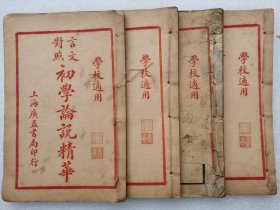 言文
對照
初學論說精華
學校適用
上海廣益書局印行
學校適用
學校適用
學校適用